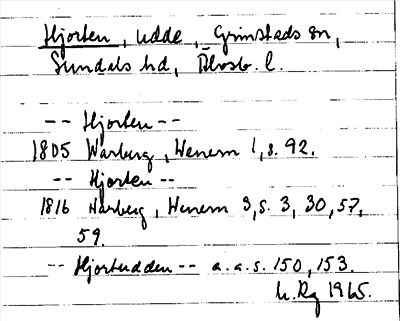 Hjorten, udde, Grinstads sn,
Sundals hd, Älvsb. l.
-- Hjorten --
1805 Warberg, Wenern 1, s. 92.
-- Hjorten --
1816 Warberg, Wenern 3, s. 3, 30, 57,
59.
-- Hjortudden -- a.a.s. 150, 153.
1965.